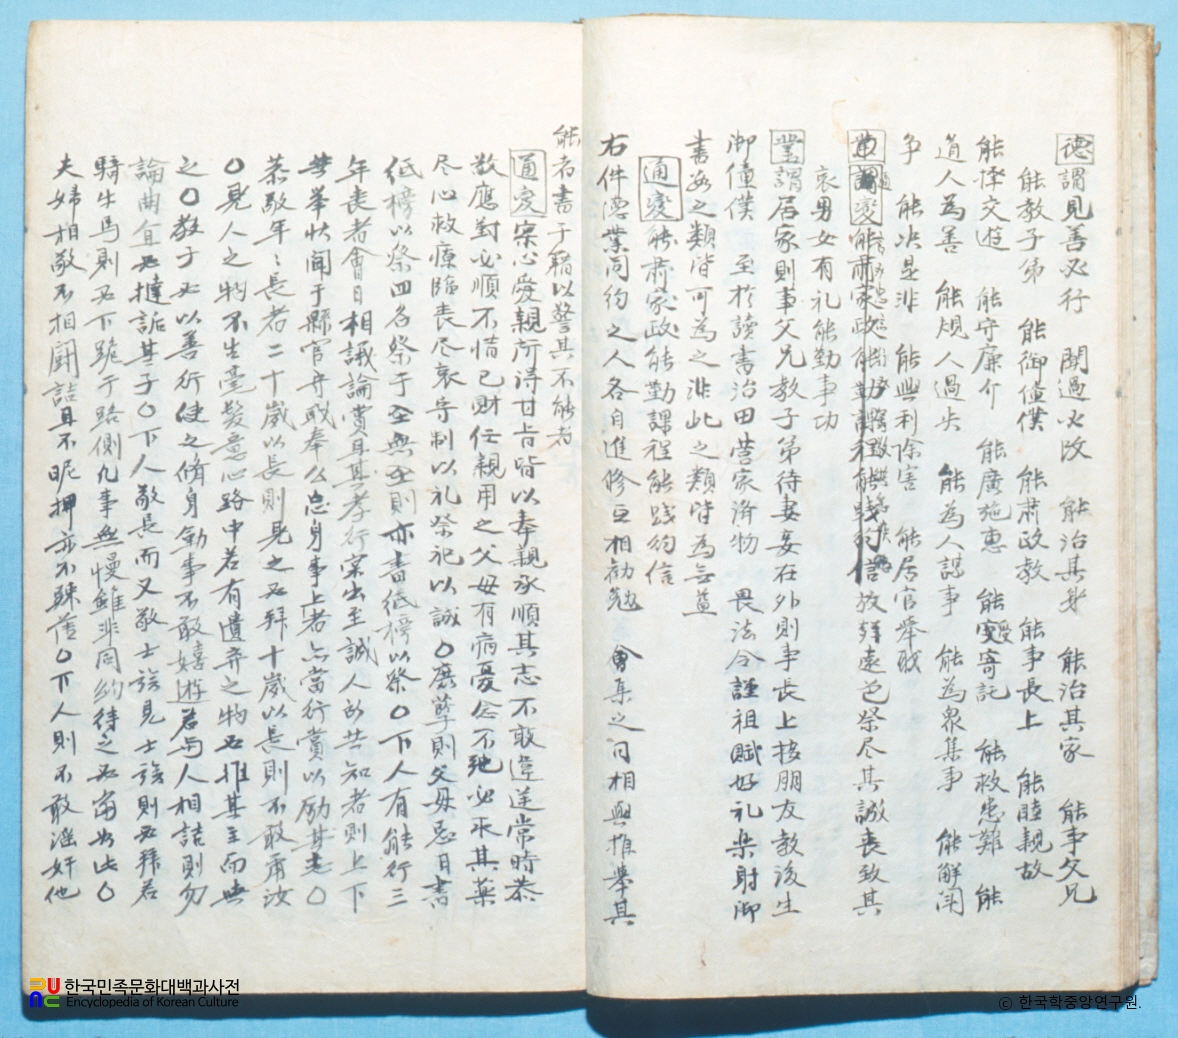 德謂見善必行 聞過必改 能治其身 能治其家 能事父兄
能教子弟 能御僮僕 能肅政教 能事長上 能睦親故
能擇交遊 能守廉介 能廣施惠 能受寄託 能救患難 能
道人為善 能規人過失 能為人謀事 能為衆集事 能解鬪
爭 能决是非 能興利除害 能居官舉職
能肅家政能勤課程能踐約信放鄭遠色祭尽其誠丧致其
哀男女有礼能勤事功
業謂居家則事父兄教子弟待妻妾在外則事長上接朋友教後生
御僮僕 至於讀書治田營家済物 畏法令謹祖賦好礼樂射御
書数之類皆可為之非此之類皆為无益
通變 能肅家政能勤課程能踐約信
右件德業同約之人各自進修互相勸勉 會集之日相與推舉其
能者書于籍以警其不能者
通變 寀心愛親所淂甘旨皆以奉親承順其志不敢違逆常時恭
敬應對必順不惜己財任親用之父母有病憂念不弛必求其薬
尽心救療臨丧尽哀守制以礼祭祀以誠〇庶孽則父母忌日書
紙榜以祭四名祭于 則亦書紙榜以祭〇下人有能行三
年丧者會日相議論賞且其孝行寀出至誠人所共知者則上下
共举状聞于縣官守敢奉公忘身事上者亦當行賞以励其志〇
恭敬年年長者二十歲以長則見之必拜十歲以長則不敢甭汝
〇見人之物不生毫髪意心路中若有遺弃之物必推其主而與
之〇教子必以善行使之脩身勤事不敢嬉遊若与人相詰則勿
論曲直必撻詬其子〇下人敬長而又敬士族見士族則必拜若
騎牛馬則必下跪于路側凡事無慢雖非同約待之必當如此〇
夫婦相敬不相鬪詰且不昵押亦不踈薄〇下人則不敢淫奸他
한국민족문화대백과사전
Encyclopedia of Korean Culture
© 한국학중앙연구원.